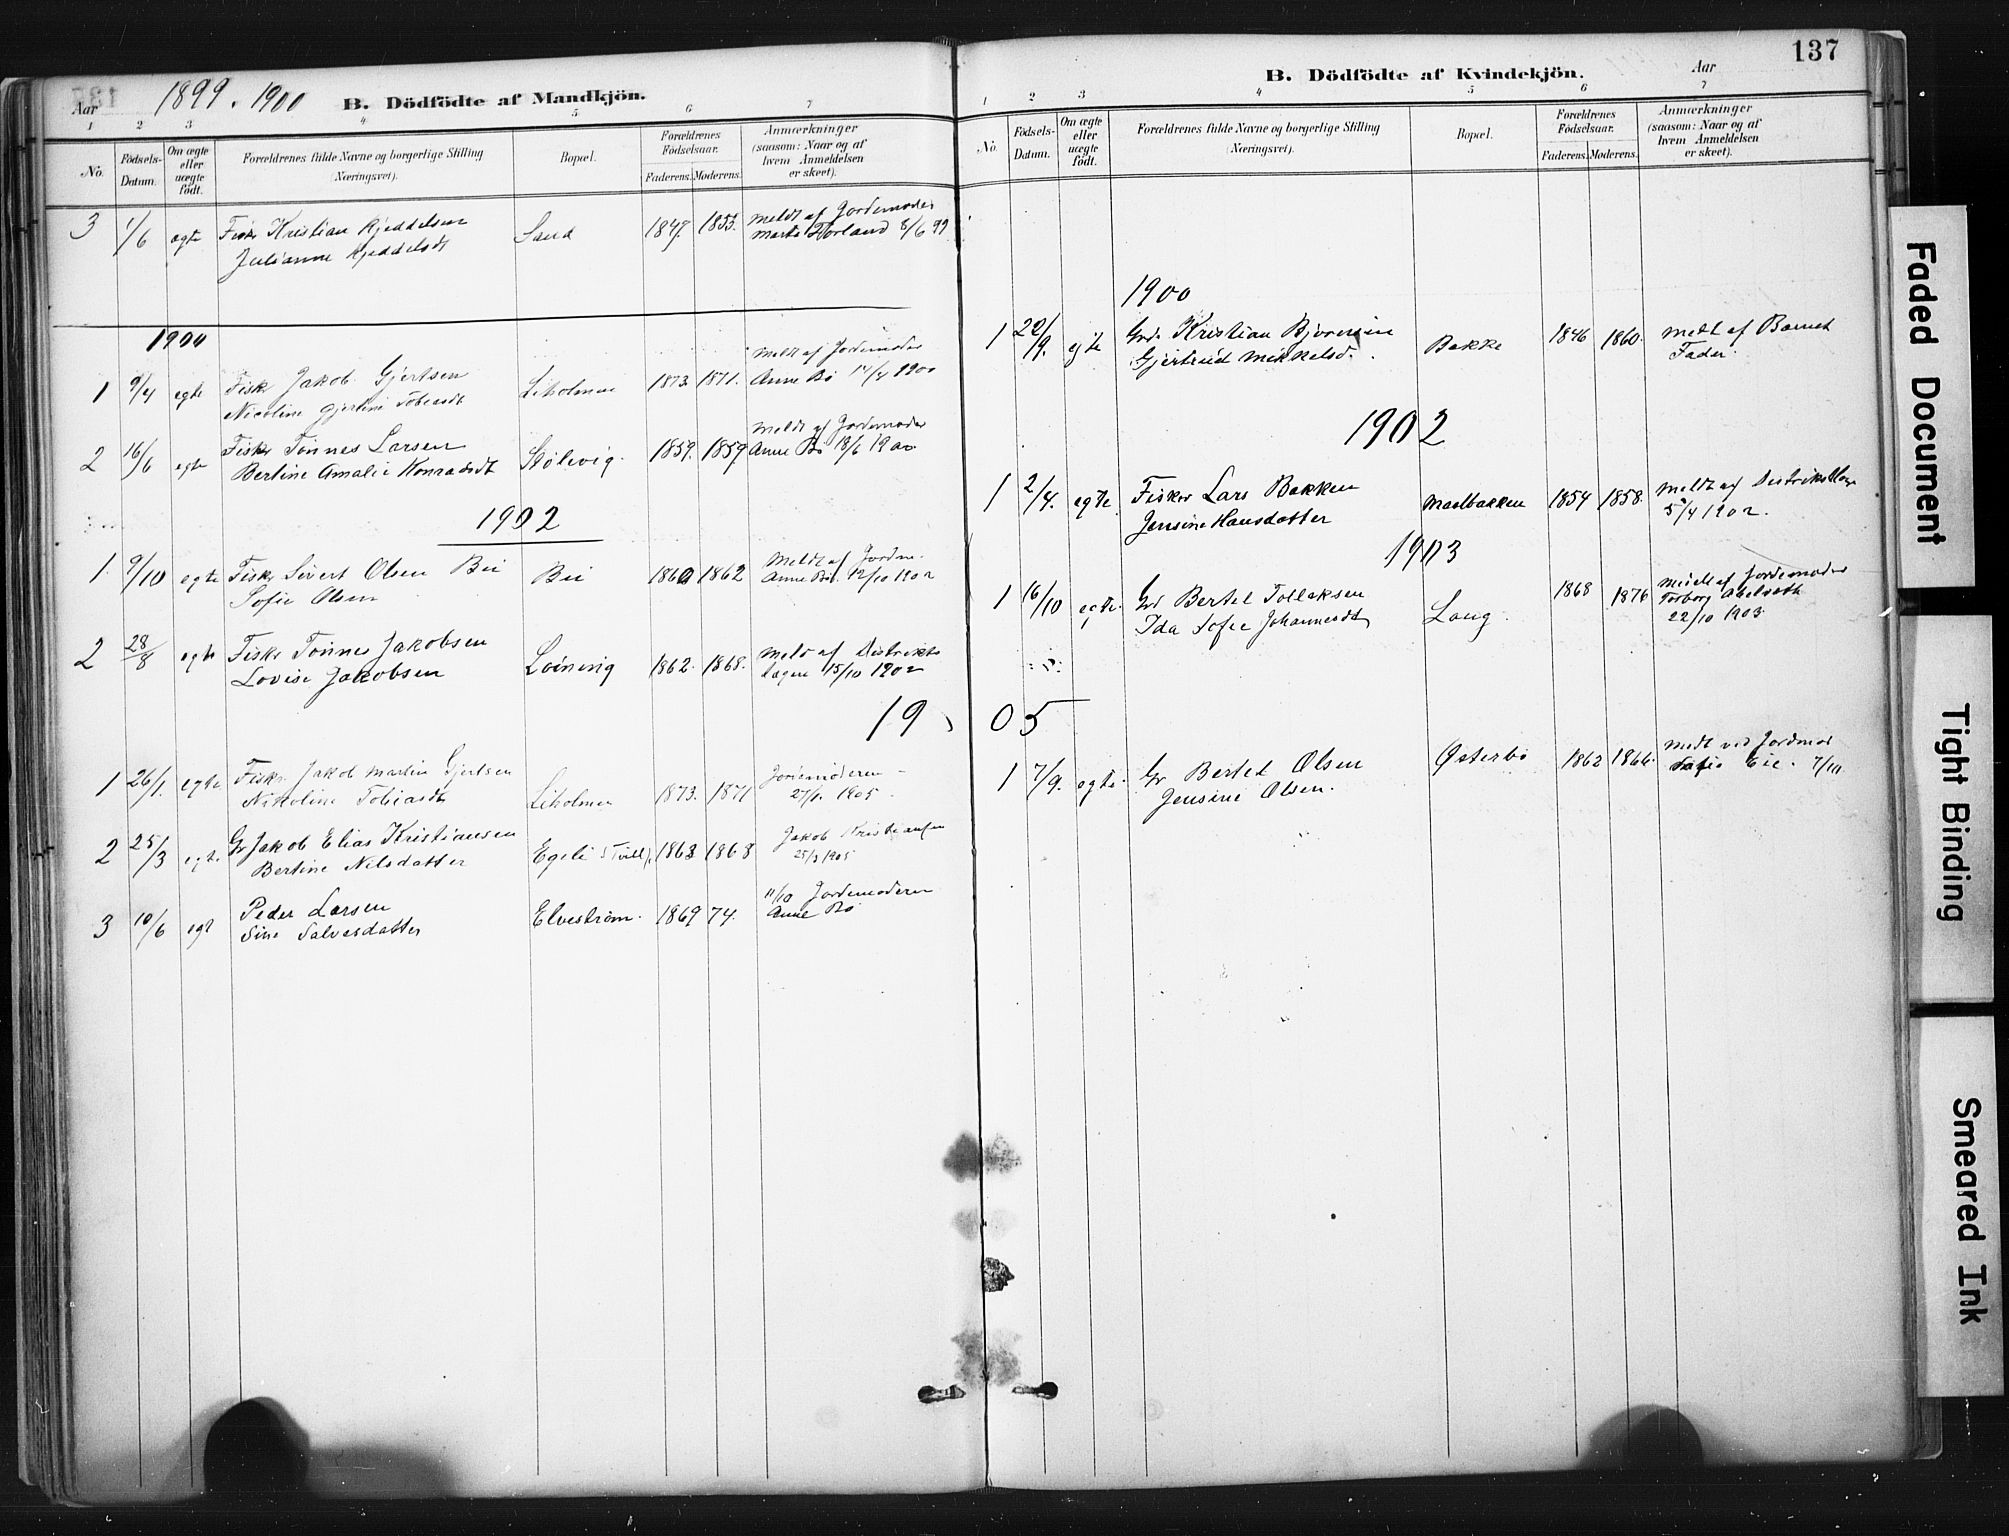 Aar 1899. 1900 B. Dödfödte af Mandkjön.
1 2 3 4 5 6 7
No. Födsels-Datum. Om ægte eller uægte födt. Forældrenes fulde Navne og borgerlige Stilling (Næringsvei). Bopæl. Forældrenes Födselsaar. Faderens. Moderens. Anmærkninger (saasom: Naar og af hvem Anmeldelsen er skeet).
3 1/6 ægte Fisker Kristian Kjeddelsen Sand 1847. 1855. Meldt af Jordemoder
Julianne Kjeddelsdt Marta Torland 8/6 99
1900
1 9/4 egte Fisk Jakob Gjertsen Liholmen 1873 1871. Meldt af Jordemoder
Nicoline Gjertine Tobiasdt Anne Bö 14/4 1900
2 16/6 egte Fisker Tönnes Larsen Stölevig. 1859. 1859 Meldt af Jordemoder
Bertine Amalie Konradsdt Anne Bö 18/6 1900
1902
1. 9/10 egte Fiskr Sivert Olsen Bii Bii 1860 1862 Meldt af Jordm.
Sofie Olsen Anne Bö. 12/10 1902
2 28/8 egte Fiskr Tönnes Jakobsen 1862. 1868. Meld af Distrikts
Lovise Jakobsen lægen 15/10 1902
1905
1 26/1 egte Fiskr Jakob Martin Gjertsen Liholmen 1873. 1871 Jordemoderen
Nikoline Tobiasdt 27/1. 1905
2 25/3 egte Gr Jakob Elias Kristiansen Egeli (Tvill). 1863 1868 Jakob Kristiansen
Bertine Nilsdatter 25/3 1905
3 10/6 egt Peder Larsen Elvestrøm. 1869 74. 11/10 Jordemoderen
Sine Salvesdatter Anne Bö
137
B. Dödfödte af Kvindekjön. Aar
1 2 3 4 5 6 7
No. Födsels-Datum. Om ægte eller uægte födt. Forældrenes fulde Navne og borgerlige Stilling (Næringsvei). Bopæl. Forældrenes Födselsaar. Faderens. Moderens. Anmærkninger (saasom: Naar og af hvem Anmeldelsen er skeet).
1900
1 22/9. egte Grd. Kristian Bjornsen Bakke 1846 1860. Meldt af Barnets
Gjertrud Mikkelsd. Fader.
1902
1 2/4. egte. Fisker Lars Bakken Maalbakken 1854 1858. Meldt af Distriktslæge
Jensine Hansdatter 5/4 1902.
1903
1 16/10 egte. Gr Bertel Tollaksen Laug 1868 1876 Meldt af Jordemoder
Ida Sofie Johannesdt Torborg Abelseth
22/10 1903
1 7/9. egte. Gr Bertel Olsen Østerbö 1862 1866. Meldt ved Jordmor
Jensine Olsen. Sofie Eie. 7/10
Faded Document
Tight Binding
Smeared Ink